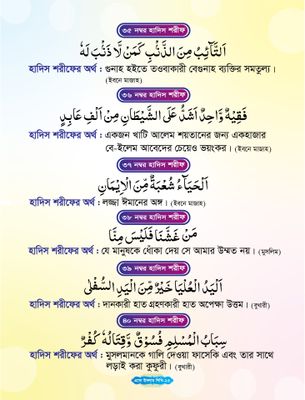 ৩৫ নম্বর হাদিস শরীফ
اَلتَّآئِبُ مِنَ الذَّنْبِ كَمَنْ لَّا ذَنْبَ لَهٗ
হাদিস শরীফের অর্থ : গুনাহ হইতে তওবাকারী বেগুনাহ ব্যক্তির সমতুল্য।
(ইবনে মাজাহ)
৩৬ নম্বর হাদিস শরীফ
فَقِيْهٌ وَّاحِدٌ اَشَدُّ عَلَى الشَّيْطَانِ مِنْ اَلْفِ عَابِدٍ
হাদিস শরীফের অর্থ : একজন খাটি আলেম শয়তানের জন্য একহাজার
বে-ইলেম আবেদের চেয়েও ভয়ংকর। (ইবনে মাজাহ)
৩৭ নম্বর হাদিস শরীফ
اَلْحَيَآءُ شُعْبَةٌ مِّنَ الْاِيْمَانِ
হাদিস শরীফের অর্থ : লজ্জা ঈমানের অঙ্গ। (ইবনে মাজাহ)
৩৮ নম্বর হাদিস শরীফ
مَنْ غَشَّنَا فَلَيْسَ مِنَّا
হাদিস শরীফের অর্থ : যে মানুষকে ধোঁকা দেয় সে আমার উম্মত নয়। (মুসলিম)
৩৯ নম্বর হাদিস শরীফ
اَلْيَدُ الْعُلْيَا خَيْرٌ مِّنَ الْيَدِ السُّفْلٰى
হাদিস শরীফের অর্থ : দানকারী হাত গ্রহণকারী হাত অপেক্ষা উত্তম। (বুখারী)
৪০ নম্বর হাদিস শরীফ
سِبَابُ الْمُسْلِمِ فُسُوْقٌ وَّقِتَالُهٗ كُفْرٌ
হাদিস শরীফের অর্থ : মুসলমানকে গালি দেওয়া ফাসেকি এবং তার সাথে
লড়াই করা কুফুরী। (বুখারী)